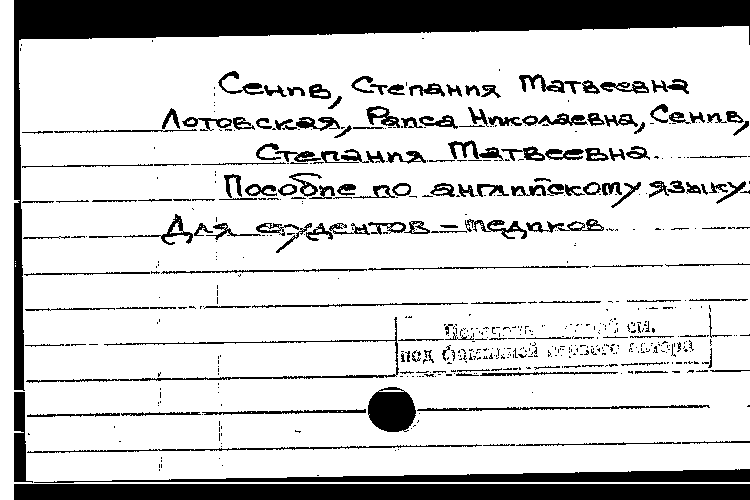 Сенив, Степания Матвеевна
Лотовская, Раиса Николаевна, Сенив,
Степания Матвеевна.
Пособие по английскому языку
Для студентов – медиков
см.
под фамилией первого автора